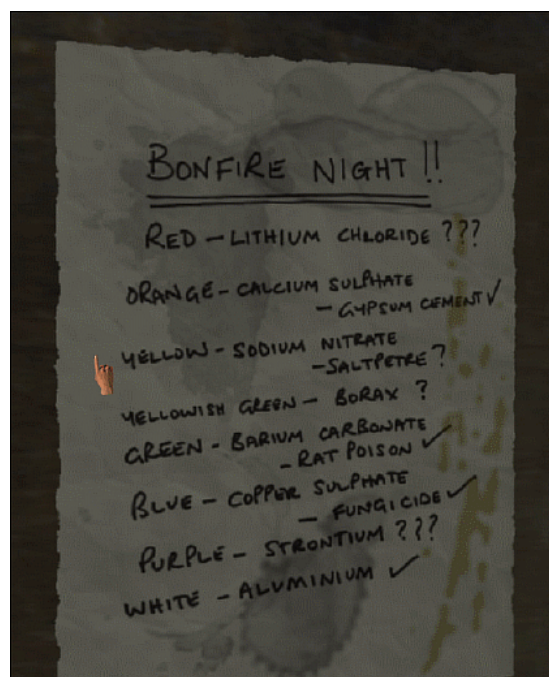 BONFIRE NIGHT!!
RED - LITHIUM CHLORIDE ???
ORANGE - CALCIUM SULPHATE
- GYPSUM CEMENT ✓
YELLOW - SODIUM NITRATE
- SALTPETRE ?
YELLOWISH GREEN - BORAX ?
GREEN - BARIUM CARBONATE
- RAT POISON ✓
BLUE - COPPER SULPHATE
- FUNGICIDE ✓
PURPLE - STRONTIUM ???
WHITE - ALUMINIUM ✓